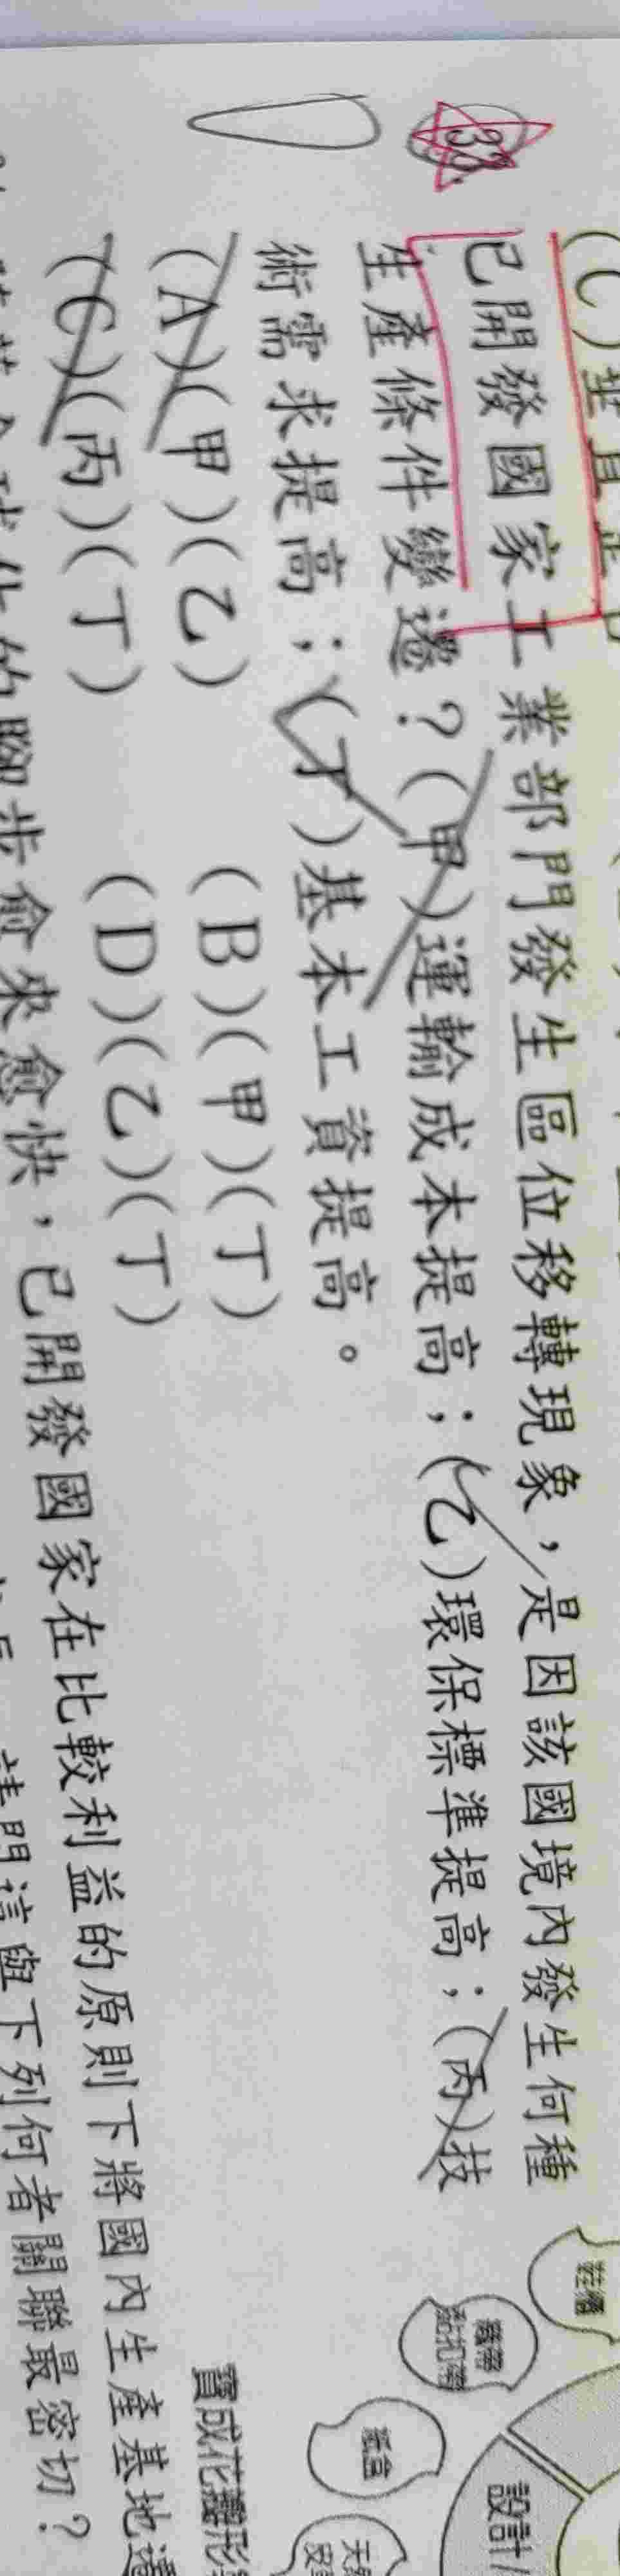 (C)垂直
33.
已開發國家工業部門發生區位移轉現象，是因該國境內發生何種
生產條件變遷？(甲)運輸成本提高；(乙)環保標準提高；(丙)技
術需求提高；(丁)基本工資提高。
(A)(甲)(乙) (B)(甲)(丁)
(C)(丙)(丁) (D)(乙)(丁)
的腳步愈來愈快，已開發國家在比較利益的原則下將國內生產基地遷
請問這與下列何者關聯最密切？
鞋墊
織帶
黏扣帶
紙盒
設計/
寶成花瓣形